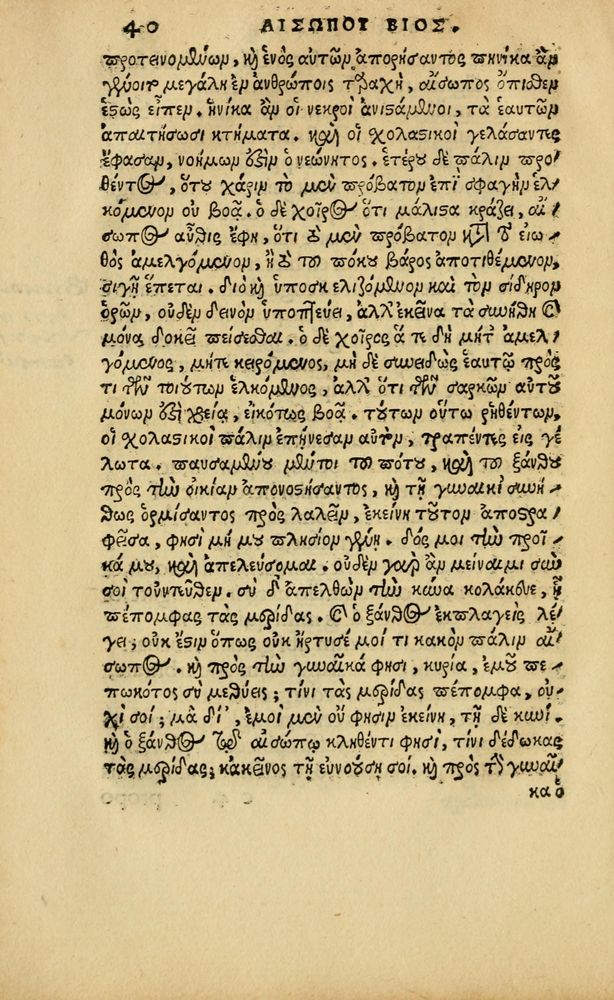 40 ΑΙΣΩΠΟΥ ΒΙΟΣ.
προτεινομένων, καὶ ἑνὸς αὐτῶν ἀπορήσαντος πηνίκα ἂν
γένοιτ μεγάλη ἐν ἀνθρώποις ταραχὴ, αἴσωπος ὄπισθεν
ἑστὼς εἶπεν. ἡνίκα ἂν οἱ νεκροὶ ἀνιστάμενοι, τὰ ἑαυτῶν
ἀπαιτήσωσι κτήματα. καὶ οἱ σχολαστικοὶ γελάσαντες
ἔφασαν, νοήμων ἐστὶν ὁ νεώνητος. ἑτέρου δὲ πάλιν προ
θέντος, ὅτου χάριν τὸ μὲν πρόβατον ἐπὶ σφαγὴν ἑλ
κόμενον οὐ βοᾷ. ὁ δὲ χοῖρος ὅτι μάλιστα κράζει, αἴ
σωπος αὖθις ἔφη, ὅτι τὸ μὲν πρόβατον κατὰ τὸ εἰω
θὸς ἀμελγόμενον, ἢ τὸ τοῦ πόκου βάρος ἀποτιθέμενον,
σιγῇ ἕπεται. διὸ καὶ ὑποσκελιζόμενον καὶ τὸν σίδηρον
ὁρῶν, οὐδὲν δεινὸν ὑποπτεύει, ἀλλ' ἐκεῖνα τὰ συνήθη καὶ
μόνα δοκεῖ πείσεσθαι. ὁ δὲ χοῖρος ἅ τε δὴ μήτ' ἀμελ
γόμενος, μήτε κειρόμενος, μὴ δὲ συνειδὼς ἑαυτῷ πρός
τι τῶν τοιούτων ἑλκόμενος, ἀλλ' ὅτι τῶν σαρκῶν αὐτοῦ
μόνων ἐστὶ χρεία, εἰκότως βοᾷ. τούτων οὕτω ῥηθέντων,
οἱ σχολαστικοὶ πάλιν ἐπῄνεσαν αὐτὸν, τραπέντες εἰς γέ
λωτα. παυσαμένου μέντοι τοῦ πότου, καὶ τοῦ ξάνθου
πρὸς τὴν οἰκίαν ἀπονοστήσαντος, καὶ τῇ γυναικὶ συνή
θως ὁρμίσαντος πρὸς λαλεῖν, ἐκείνη τοῦτον ἀποστρα
φεῖσα, φησὶ μή μου πλησίον γένῃ. δός μοι τὴν προῖ
κά μου, καὶ ἀπελεύσομαι. οὐδὲν γὰρ ἂν μείναιμι σὺν
σοὶ τοὐντεῦθεν. σὺ δ' ἀπελθὼν τὴν κύνα κολάκευε, ᾗ
πέπομφας τὰς μερίδας. καὶ ὁ ξάνθος ἐκπλαγεὶς λέ
γει; οὐκ ἔστιν ὅπως οὐκ ἤρτυσέ μοί τι κακὸν πάλιν αἴ
σωπος. καὶ πρὸς τὴν γυναῖκά φησι, κυρία, ἐμοῦ πε
πωκότος σὺ μεθύεις; τίνι τὰς μερίδας πέπομφα, οὐ
χὶ σοί; μὰ δί', ἐμοὶ μὲν οὔ φησιν ἐκείνη, τῇ δὲ κυνί.
καὶ ὁ ξάνθος τῷ αἰσώπῳ κληθέντι φησὶ, τίνι δέδωκας
τὰς μερίδας; κἀκεῖνος τῇ εὐνούσῃ σοί. καὶ πρὸς τὴν γυναῖ
κα ὁ